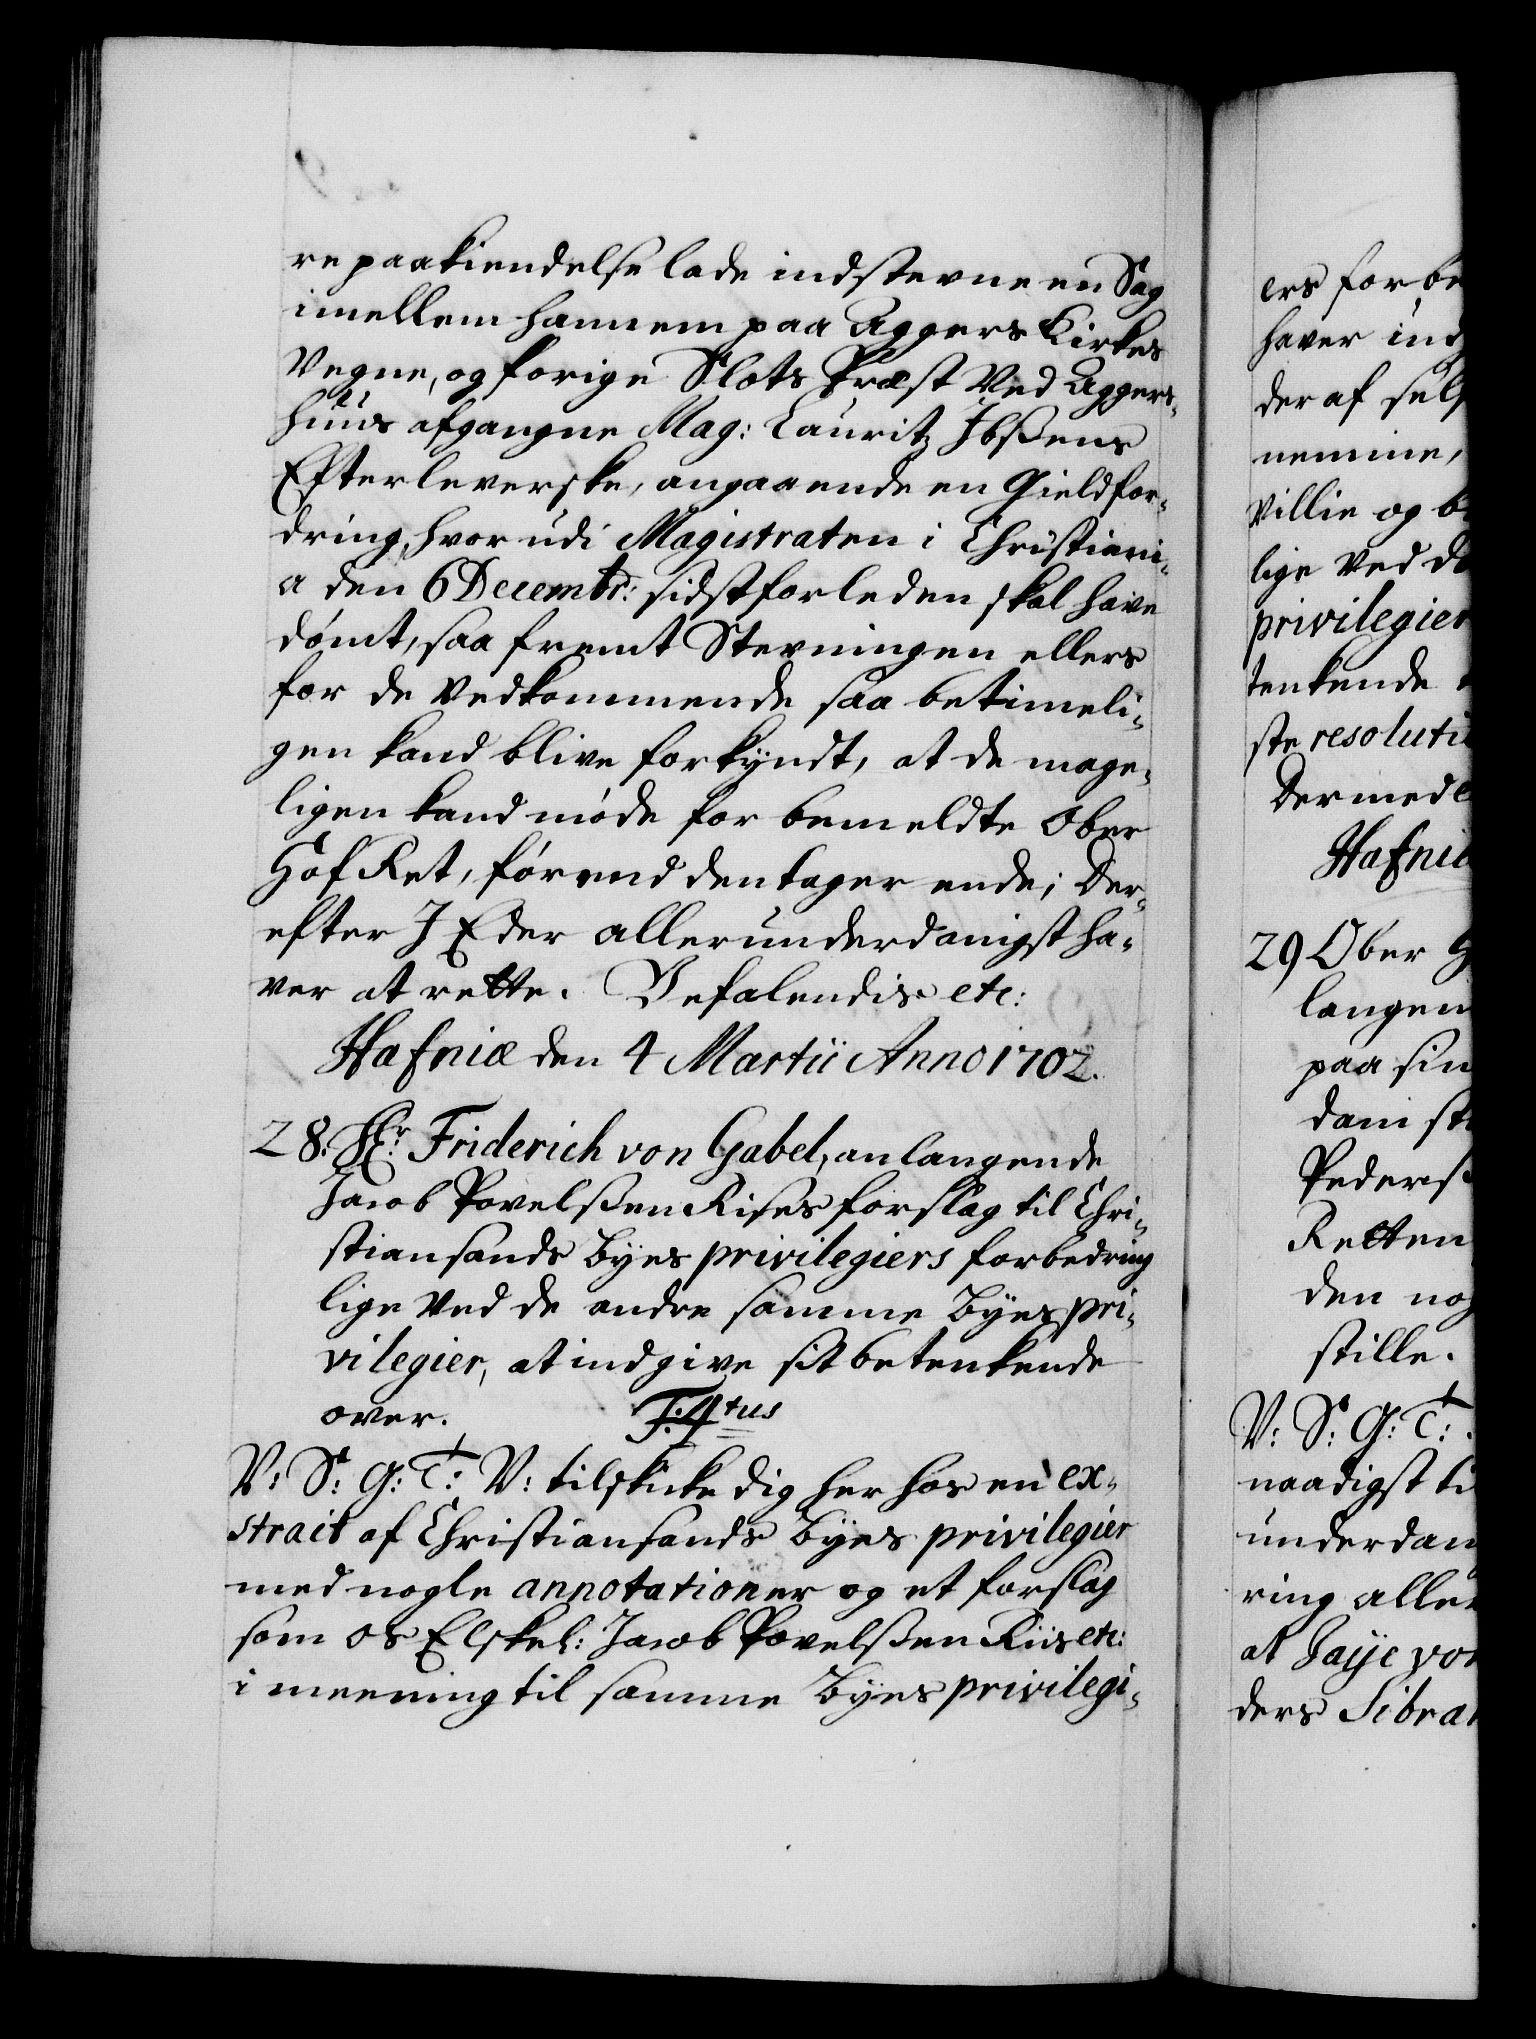 re paakiendelse lade indstevne en Sag
imellem hannem paa Aggers Kirkes
Vegne, og forige Slots Præst Ved Aggers-
huus afgangne Mag: Lauritz Ibßens
Efterleverske, angaaende en Gieldfor-
dring, hvor udi Magistraten i Christiani-
a den 6 Decembr: sidstforleden skal have
dømt, saa fremt Stevningen ellers
for de Vedkommende saa betimeli-
gen kand blive forkyndt, at de mage-
ligen kand møde for bemeldte Ober
Hof Ret, førend den tager ende; Der-
efter I Eder allerunderdanigst ha-
ver at rette. Befalendis etc:
Hafniæ den 4 Martii Anno 1702.
28. Hr: Friderich von Gabel, anlangende
Jacob Povelßen Rises forslag til Chri-
stiansands Byes privilegiers forbedring
lige Ved de andre samme Byes pri-
vilegier, at indgive sit betenkende
over. F: 4tus
V: S: G: T: V: tilskicke dig her hos en ex-
strait af Christiansands Byes privilegier
med nogle annotationer og et forslag
som os Elskel: Jacob Povelßen Riis etc:
i meening til samme Byes privilegi-
ers for be
haver ind
der af self
nemme,
Villie og b
lige Ved d
privilegier
tenkende
ste resoluti
Dermed
Hafniæ
29 Ober
langen
paa sin
dani st
Pederß
Retten
den nog
stille.
V: S: G: T:
naadigst ti
underdan
ring aller
at Jaye von
ders Sibran